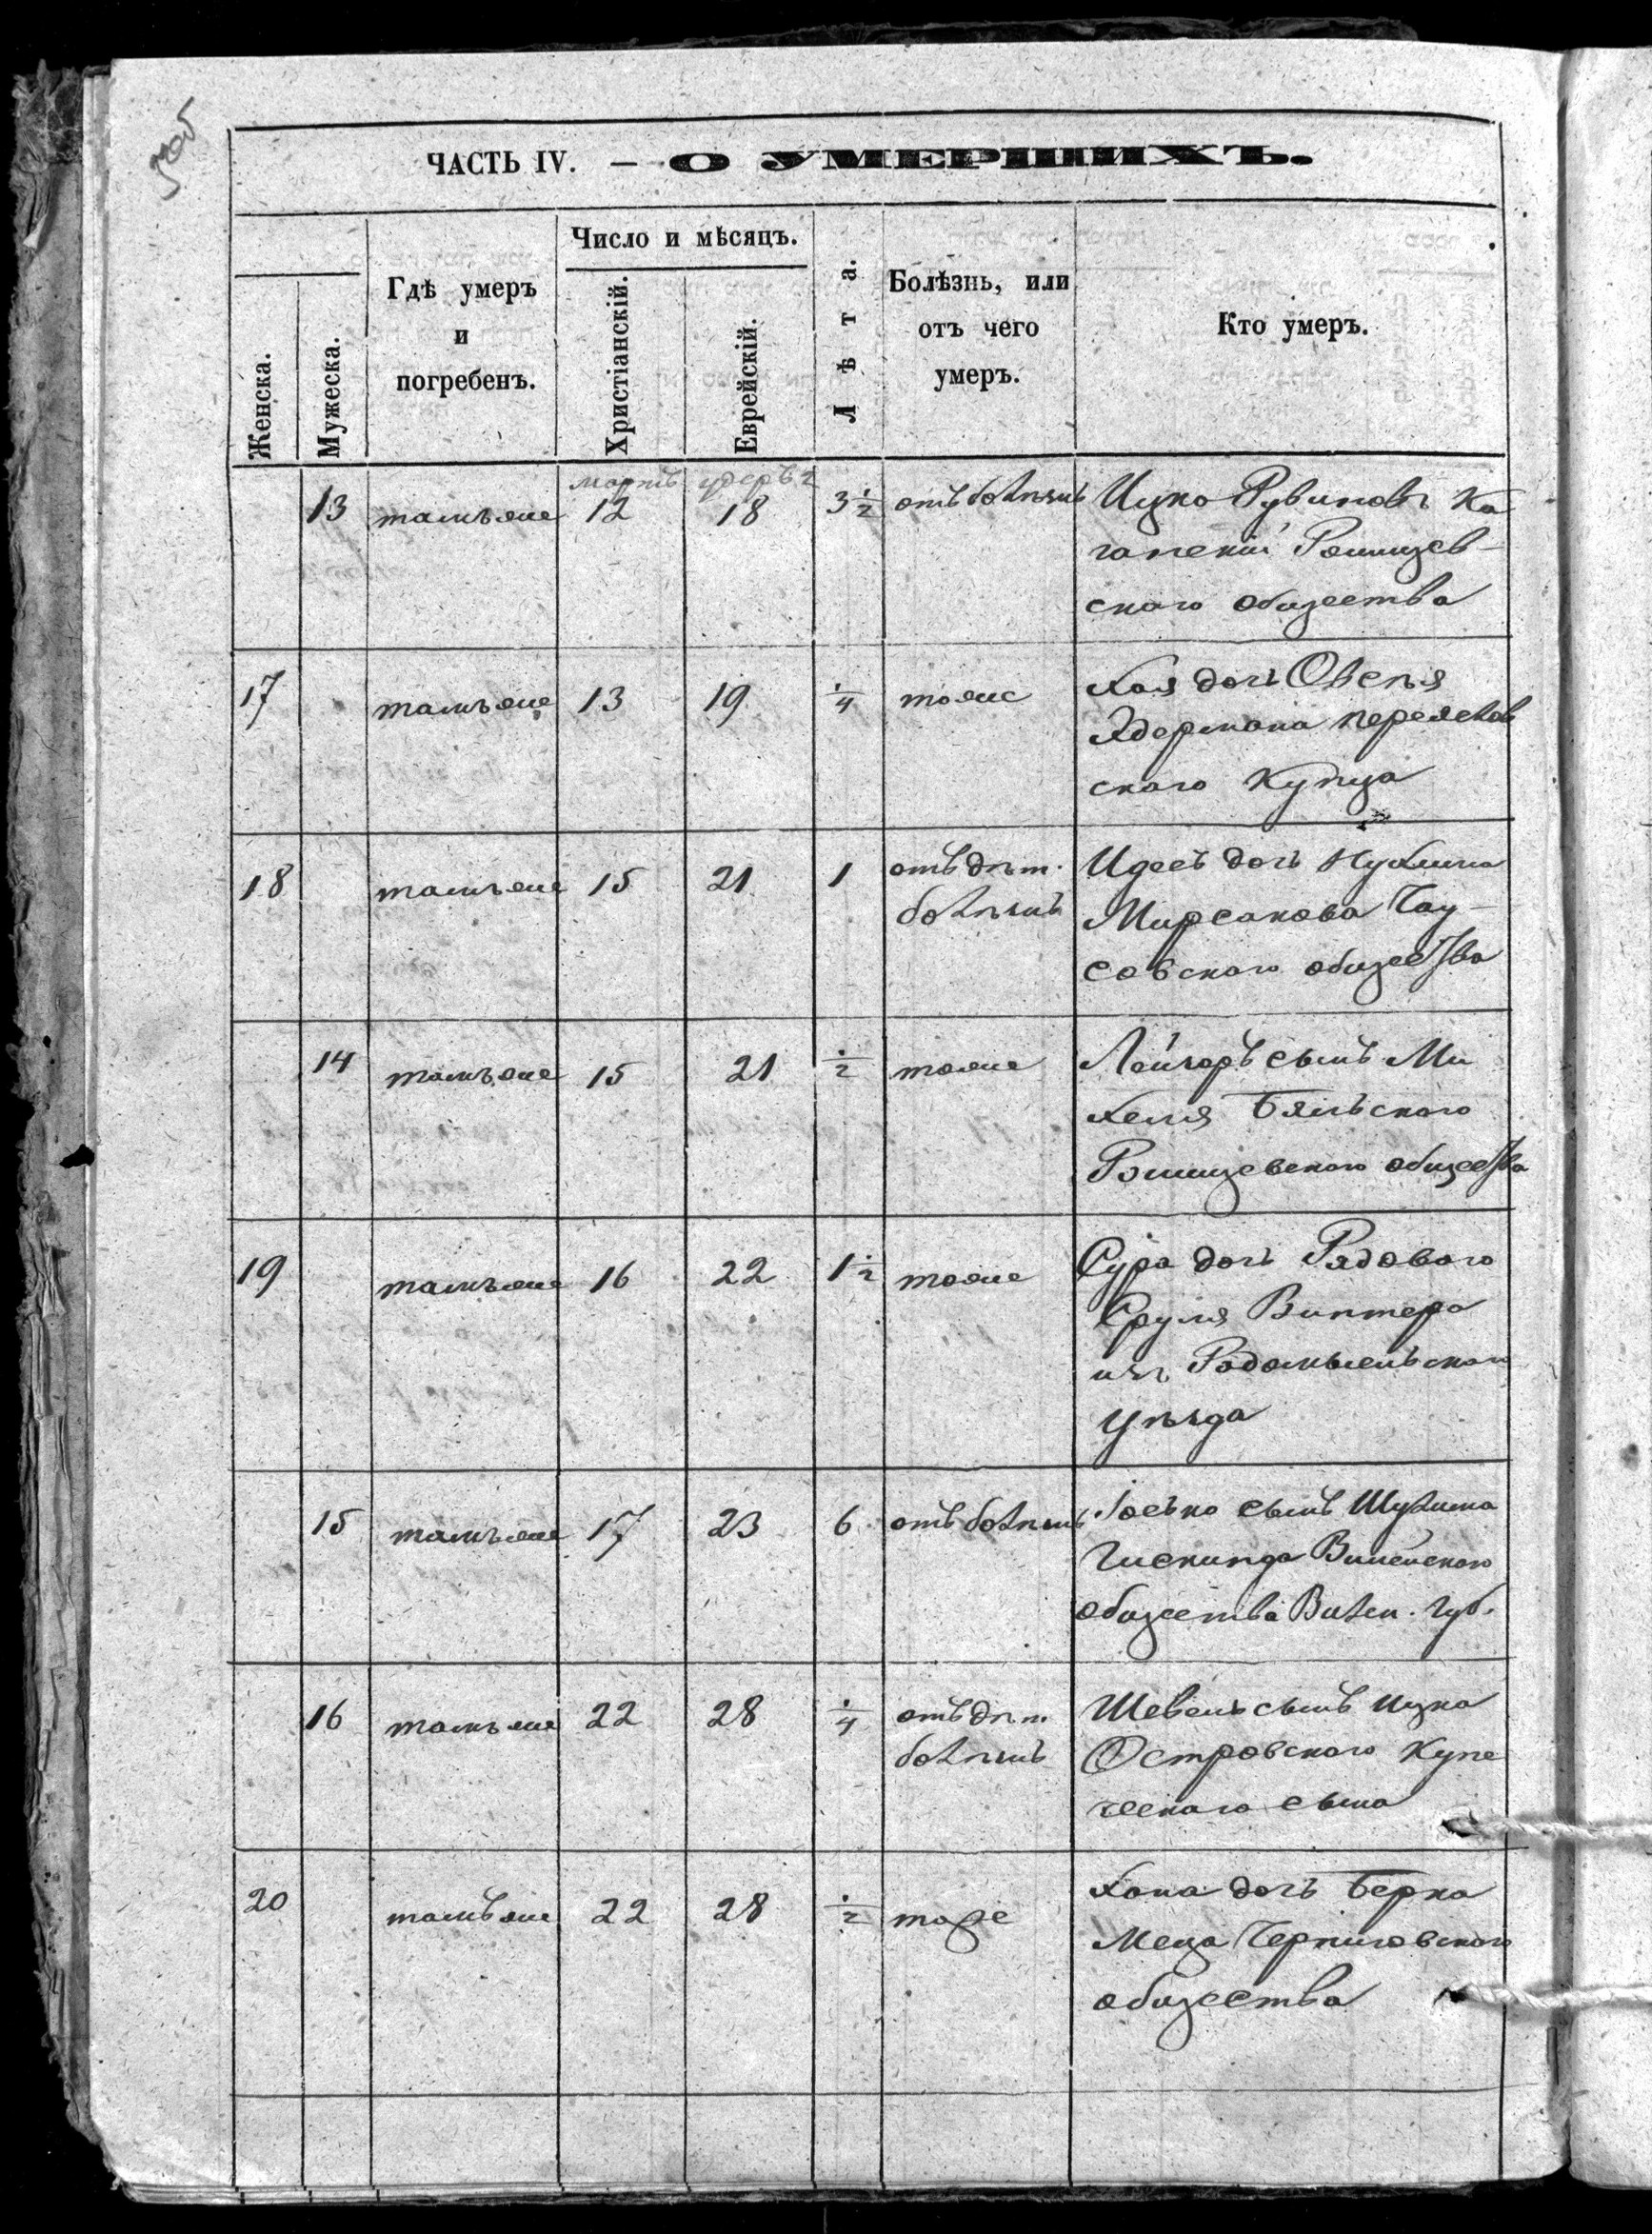 50об
ЧАСТЬ IV. — О УМЕРШИХЪ.
Женска.
Мужеска.
Гдѣ умеръ
и
погребенъ.
Число и мѣсяцъ.
Христіанскій.
Еврейскій.
Лѣта.
Болѣзнь, или
отъ чего
умеръ.
Кто умеръ.
мартъ адеръ 2
13 тамъже 12 18 3 1/2 отъ болѣзнѣ Ицко Рувиновъ Ка
ганскій Ромиzев-
скаго общества
17 тамъже 13 19 1/4 тоже Хая дочь Овсея
Адермана Переяслов
скаго купца
18 тамъже 15 21 1 отъ дѣт. Идесъ дочь Нухима
болѣзнѣ Мирсакова Чау-
совскаго общества
14 тамъже 15 21 1/2 тоже Лейзоръ сынъ Ми
хеля Бяльскаго
общества
19 тамъже 16 22 1 1/2 тоже Сура дочь Рядоваго
Сруля Винтера
изъ Радомысльскаго
уѣзда
15 тамъже 17 23 6 отъ болѣзнѣ Іосько сынъ
Гискинда Вилейскаго
общества Вилен. Губ.
16 тамъже 22 28 1/4 отъ дѣт. Шевель сынъ Ицка
болѣзнѣ Островскаго Купе
ческаго сына
20 тамъже 22 28 1/2 тоже Хана дочь Берка
Меца Черниговскаго
общества